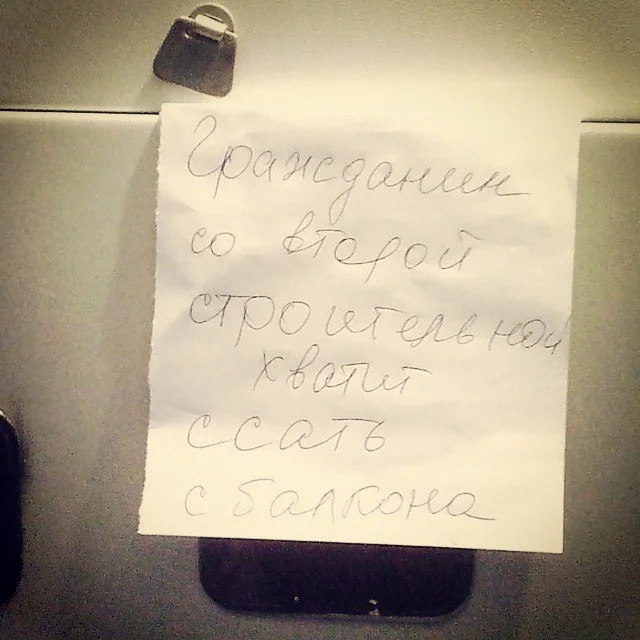 Гражданин
со второй
строительной
хватит
ссать
с балкона